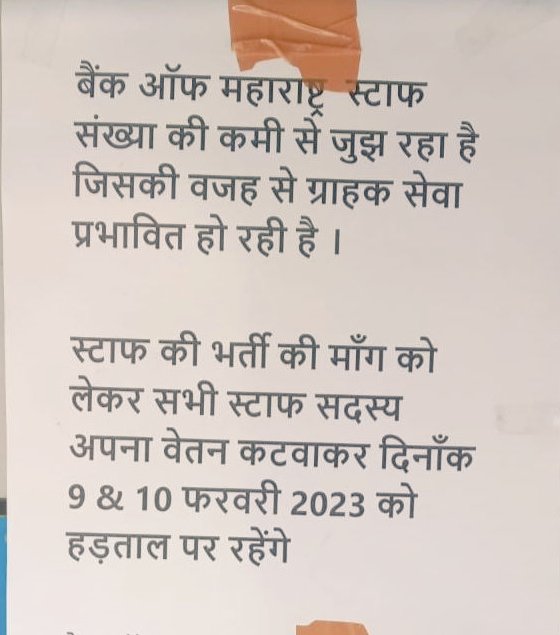 बैंक ऑफ महाराष्ट्र स्टाफ
संख्या की कमी से जुझ रहा है
जिसकी वजह से ग्राहक सेवा
प्रभावित हो रही है ।
स्टाफ की भर्ती की माँग को
लेकर सभी स्टाफ सदस्य
अपना वेतन कटवाकर दिनाँक
9 & 10 फरवरी 2023 को
हड़ताल पर रहेंगे